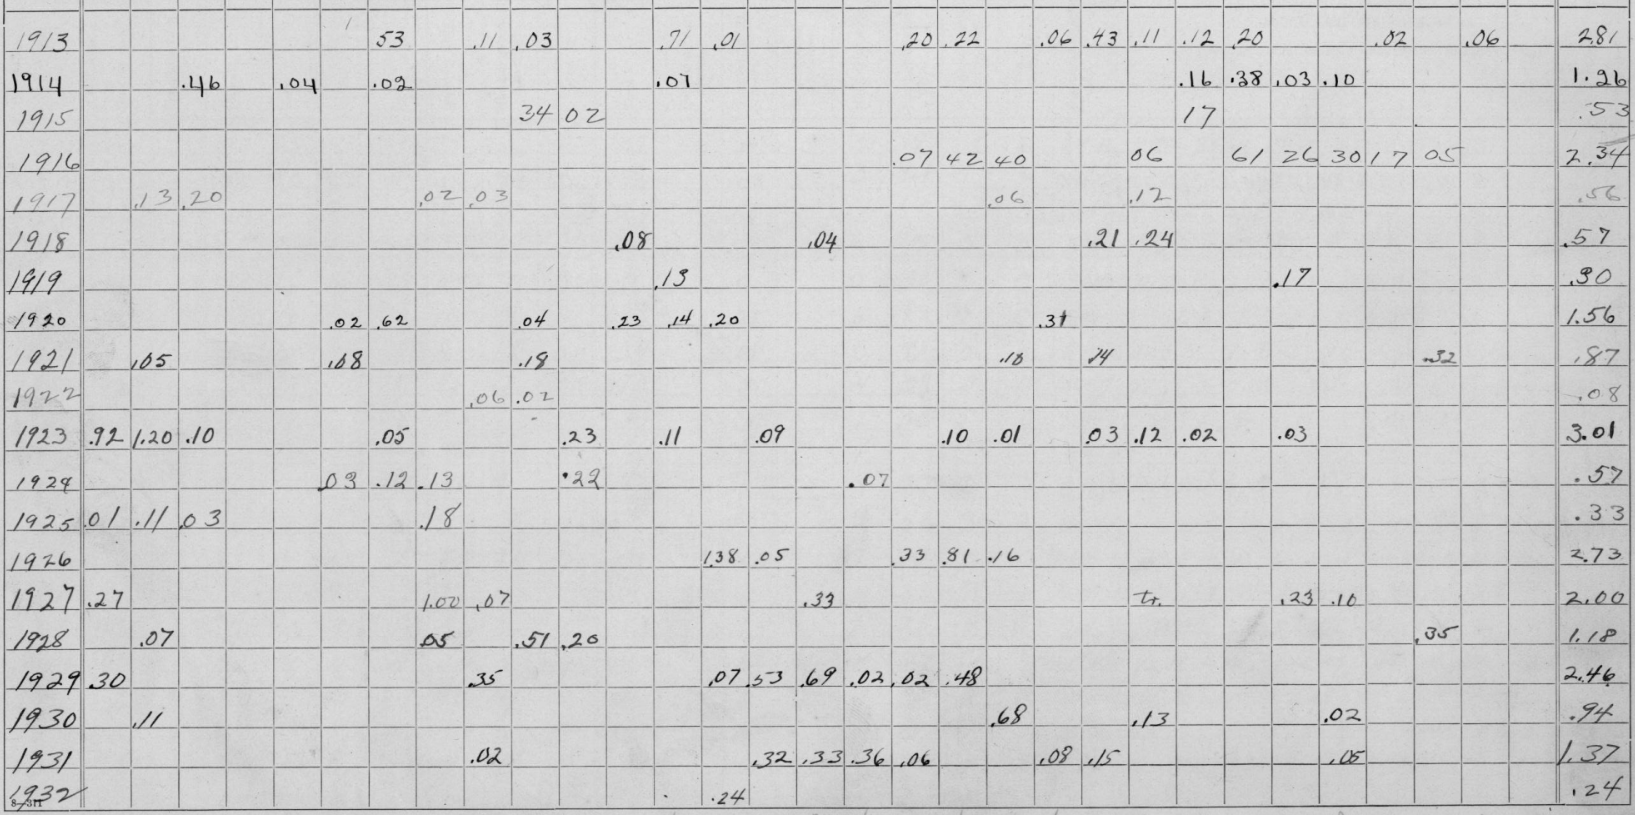 1913 53 .11 .03 .71 .01 .20 .22 .06 .43 .11 .12 .20 .02 .06 2.81
1914 .46 .04 .02 .07 .16 .38 .03 .10 1.26
1915 34 02 17 .53
1916 .07 42 40 06 61 26 30 17 05 2.34
1917 .13 .20 .02 .03 .06 .12 .56
1918 .08 .04 .21 .24 .57
1919 .13 .17 .30
1920 .02 .62 .04 .23 .14 .20 .31 1.56
1921 .05 .08 .18 .10 .14 .32 .87
1922 .06 .02 .08
1923 .92 1.20 .10 .05 .23 .11 .09 .10 .01 .03 .12 .02 .03 3.01
1924 .03 .12 .13 .22 .07 .57
1925 .01 .11 .03 .18 .33
1926 1.38 .05 .33 .81 .16 2.73
1927 .27 1.00 .07 .33 tr. .23 .10 2.00
1928 .07 .05 .51 .20 .35 1.18
1929 .30 .35 .07 .53 .69 .02 .02 .48 2.46
1930 .11 .68 .13 .02 .94
1931 .02 .32 .33 .36 .06 .08 .15 .05 1.37
1932 .24 .24
8—311